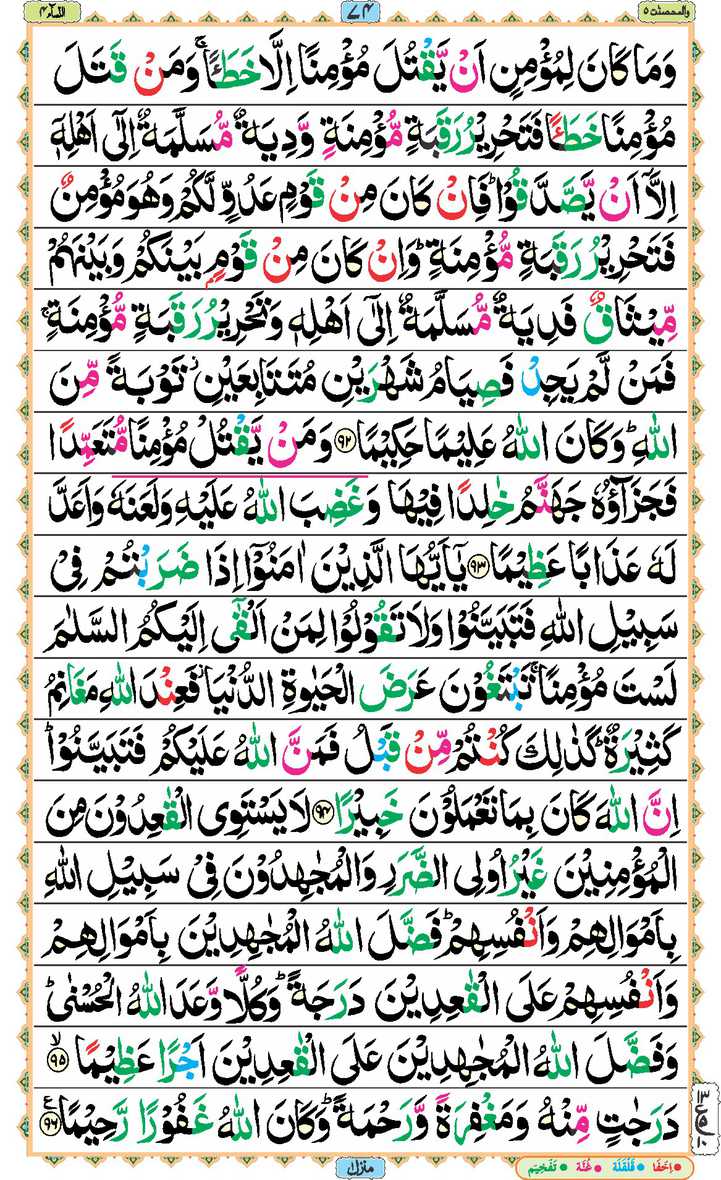 والمحصنت ٥
٧٤
النساء ٤
وَمَا كَانَ لِمُؤْمِنٍ اَنْ يَّقْتُلَ مُؤْمِنًا اِلَّا خَطَـًٔا ۚ وَمَنْ قَتَلَ
مُؤْمِنًا خَطَـًٔا فَتَحْرِيْرُ رَقَبَةٍ مُّؤْمِنَةٍ وَّدِيَةٌ مُّسَلَّمَةٌ اِلٰٓى اَهْلِهٖٓ
اِلَّآ اَنْ يَّصَّدَّقُوْا ؕ فَاِنْ كَانَ مِنْ قَوْمٍ عَدُوٍّ لَّكُمْ وَهُوَ مُؤْمِنٌ
فَتَحْرِيْرُ رَقَبَةٍ مُّؤْمِنَةٍ ؕ وَاِنْ كَانَ مِنْ قَوْمٍۭ بَيْنَكُمْ وَبَيْنَهُمْ
مِّيْثَاقٌ فَدِيَةٌ مُّسَلَّمَةٌ اِلٰٓى اَهْلِهٖ وَتَحْرِيْرُ رَقَبَةٍ مُّؤْمِنَةٍ ۚ
فَمَنْ لَّمْ يَجِدْ فَصِيَامُ شَهْرَيْنِ مُتَتَابِعَيْنِ ؗ تَوْبَةً مِّنَ
اللّٰهِ ؕ وَكَانَ اللّٰهُ عَلِيْمًا حَكِيْمًا ﴿٩٢﴾ وَمَنْ يَّقْتُلْ مُؤْمِنًا مُّتَعَمِّدًا
فَجَزَآؤُهٗ جَهَنَّمُ خٰلِدًا فِيْهَا وَغَضِبَ اللّٰهُ عَلَيْهِ وَلَعَنَهٗ وَاَعَدَّ
لَهٗ عَذَابًا عَظِيْمًا ﴿٩٣﴾ يٰٓاَيُّهَا الَّذِيْنَ اٰمَنُوْٓا اِذَا ضَرَبْتُمْ فِيْ
سَبِيْلِ اللّٰهِ فَتَبَيَّنُوْا وَلَا تَقُوْلُوْا لِمَنْ اَلْقٰٓى اِلَيْكُمُ السَّلٰمَ
لَسْتَ مُؤْمِنًا ۚ تَبْتَغُوْنَ عَرَضَ الْحَيٰوةِ الدُّنْيَا ؗ فَعِنْدَ اللّٰهِ مَغَانِمُ
كَثِيْرَةٌ ؕ كَذٰلِكَ كُنْتُمْ مِّنْ قَبْلُ فَمَنَّ اللّٰهُ عَلَيْكُمْ فَتَبَيَّنُوْا ؕ
اِنَّ اللّٰهَ كَانَ بِمَا تَعْمَلُوْنَ خَبِيْرًا ﴿٩٤﴾ لَا يَسْتَوِى الْقٰعِدُوْنَ مِنَ
الْمُؤْمِنِيْنَ غَيْرُ اُولِى الضَّرَرِ وَالْمُجٰهِدُوْنَ فِيْ سَبِيْلِ اللّٰهِ
بِاَمْوَالِهِمْ وَاَنْفُسِهِمْ ؕ فَضَّلَ اللّٰهُ الْمُجٰهِدِيْنَ بِاَمْوَالِهِمْ
وَاَنْفُسِهِمْ عَلَى الْقٰعِدِيْنَ دَرَجَةً ؕ وَكُلًّا وَّعَدَ اللّٰهُ الْحُسْنٰى ؕ
وَفَضَّلَ اللّٰهُ الْمُجٰهِدِيْنَ عَلَى الْقٰعِدِيْنَ اَجْرًا عَظِيْمًا ﴿٩٥﴾ ۙ
دَرَجٰتٍ مِّنْهُ وَمَغْفِرَةً وَّرَحْمَةً ؕ وَكَانَ اللّٰهُ غَفُوْرًا رَّحِيْمًا ﴿٩٦﴾ ع
منزل
اِخْفَا
قَلْقَلَة
غُنَّه
تَفْخِيْم